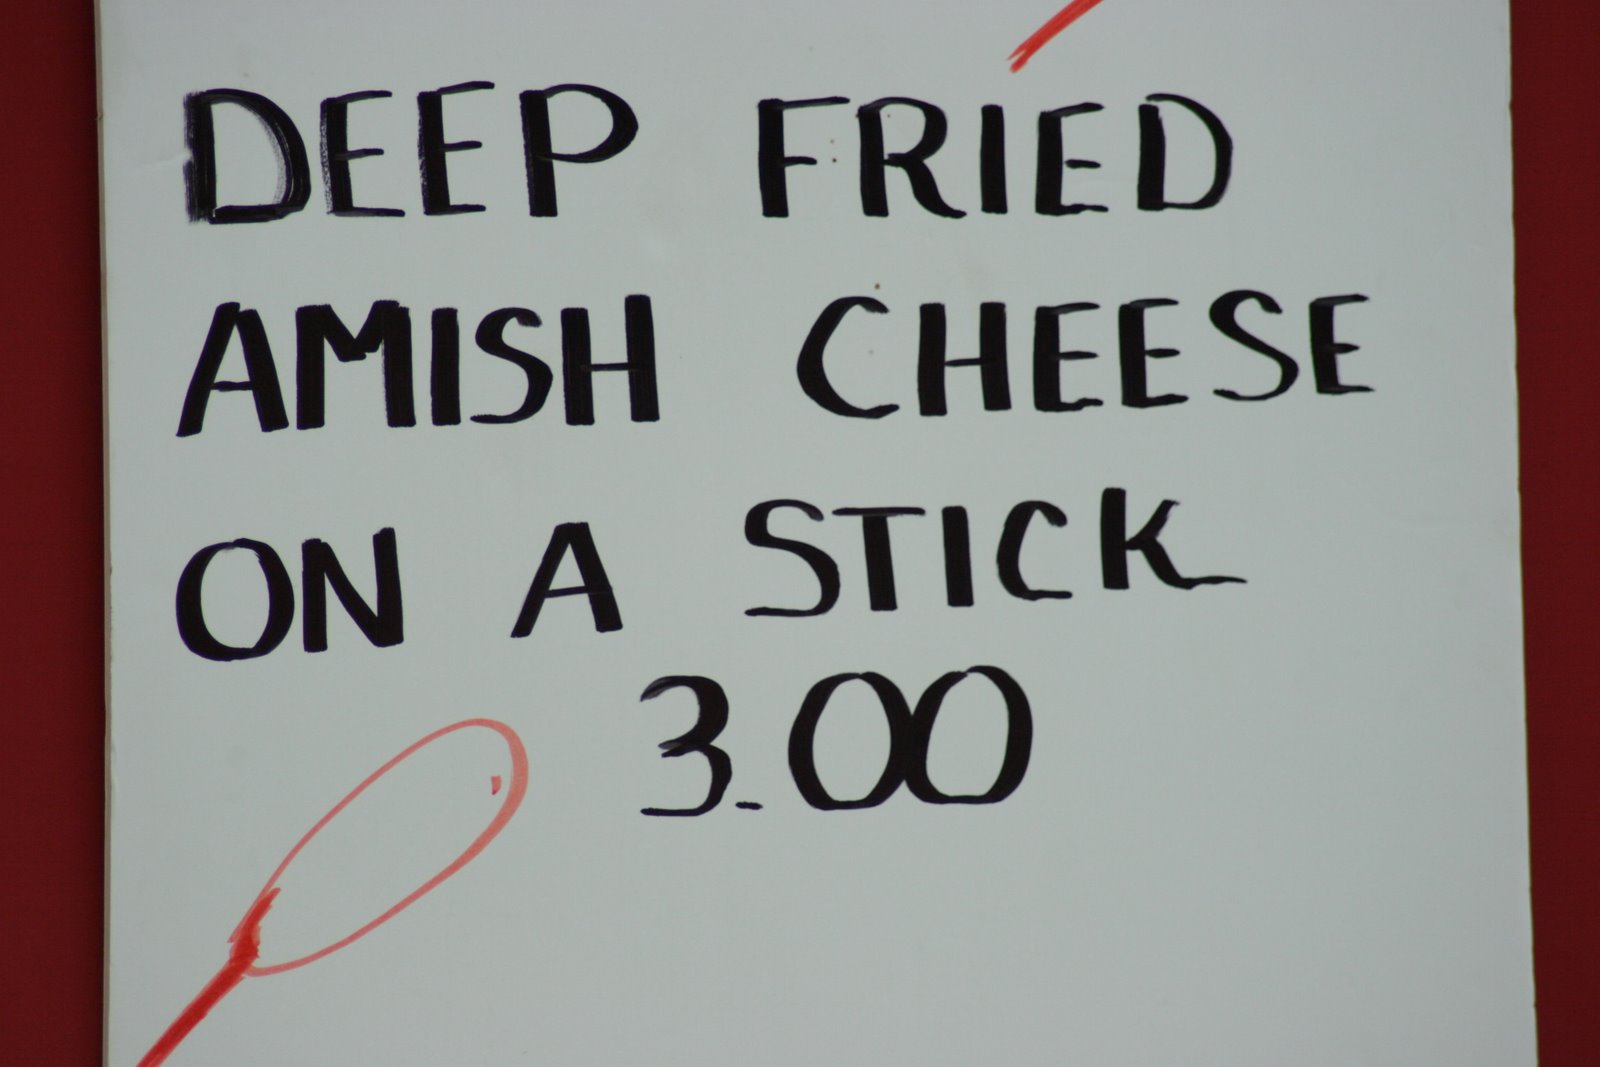 DEEP FRIED
AMISH CHEESE
ON A STICK
3.00